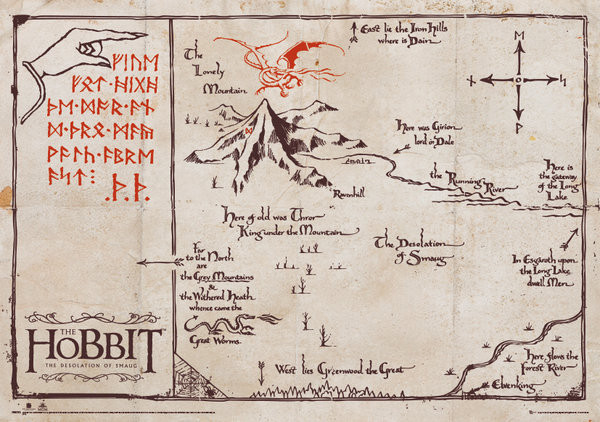 ᚠᛁᚢᛖ
ᚠᚩᛏ·ᚻᛁᚷᚻ
ᚦᛖ·ᛞᚩᚱ·ᚪᚾ
ᛞ·ᚦᚱᛟ·ᛗᚪᚣ
ᚹᚪᛚᚳ·ᚪᛒᚱᛖ
ᚪᛋᛏ⁝
.ᚦ.ᚦ.
East lie the Iron Hills
where is Dain
The
Lonely
Mountain
ᛖ
ᚾ
ᛋ
ᚹ
ᛞ
Here was Girion
lord in Dale
the Running
River
Here is
the gateway
of the Long
Lake
Ravenhill
Here of old was Thror
King under the Mountain
The Desolation
of Smaug
Far
to the North
are
the Grey Mountains
&
the Withered Heath
whence came the
Great Worms
In Esgaroth upon
the Long Lake
dwell Men
West lies Greenwood the Great
Here flows the
Forest River
Elvenking
THE
HOBBIT
THE DESOLATION OF SMAUG